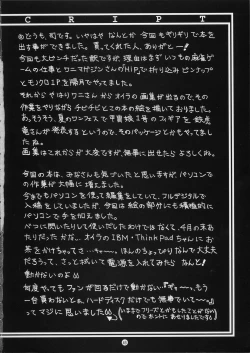 SCRIPT
どうも、町です。いやはやなんとか今回もギリギリで本を
出す事ができました。買ってくれた人、ありがとー！
今回も大ピンチだった訳ですが、理由はまずいつもの麻雀ゲー
ムの仕事とワニマガジンさんのH.P.で折り込みピンナップ
とモノクロ1Pを隔月でやってました。
それからやはりワニさんからオイラの画集が出るので、その
作業をやりながらチビチビとこの本の絵を描いておりました。
あ、そうそう、夏のワンフェスで
のフィギアを
さんが発表するというので、そのパッケージとかもやってまし
たね。
画集はこれからが大変ですが、無事に出せたらよろしくね。
今回の本は、みなさんも気づいたと思います が、パソコンで
の作業が大幅に増えました。
今までもパソコンを使って編集をしていて、フルデジタルで
入稿をしていましたが、今回は絵の部分にも積極的に
パソコンで手を加えました。
ペコに聞いたりして使いだしたわけではなくて、今月の末あ
たりだったかな…オイラのIBM・ThinkPadちゃんにお
茶をかけちゃってさ…ちゃー。ほんのちょっぴりなんで大丈夫
だろうって、さっとふいて電源を入れてみたら なんと！
動かないのよ
何度やってもファンが回るだけで動かない。『ギャー、もう
一台買わないと。ハードディスクだけでも無事でいて〜』
ってマジに思いました